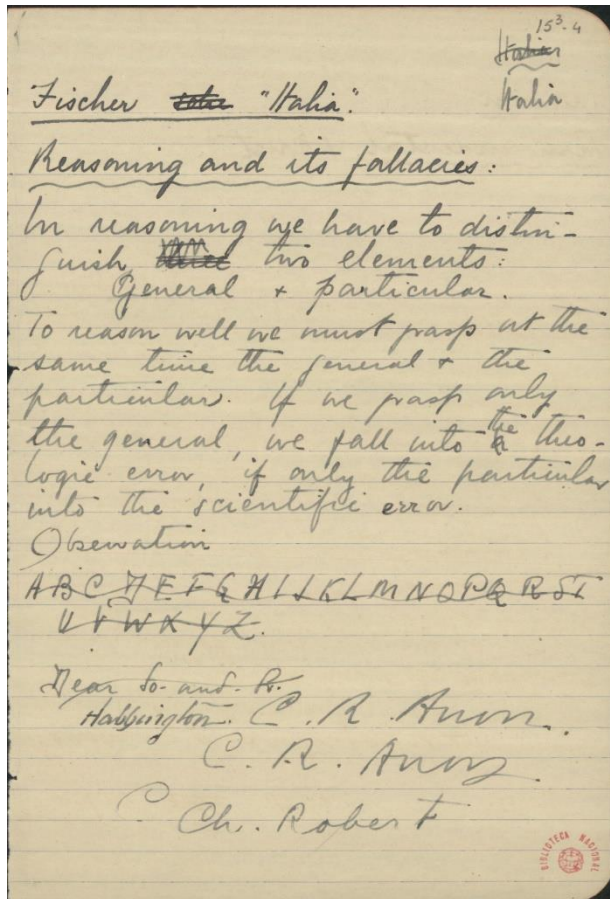 15³-4
Italia
Italia
Fischer sobre "Italia".
Reasoning and its fallacies:
In reasoning we have to distin-
guish three two elements:
General + particular.
To reason well we must grasp at the
same time the general + the
particular. If we grasp only
the general, we fall into the theo-
logic error, if only the particular
into the scientific error.
Observation
A B C D E F G H I J K L M N O P Q R S T
U V W X Y Z.
Dear So-and-So.
C. R. Anon.
C. R. Anon
C
Ch. Robert
BIBLIOTECA NACIONAL